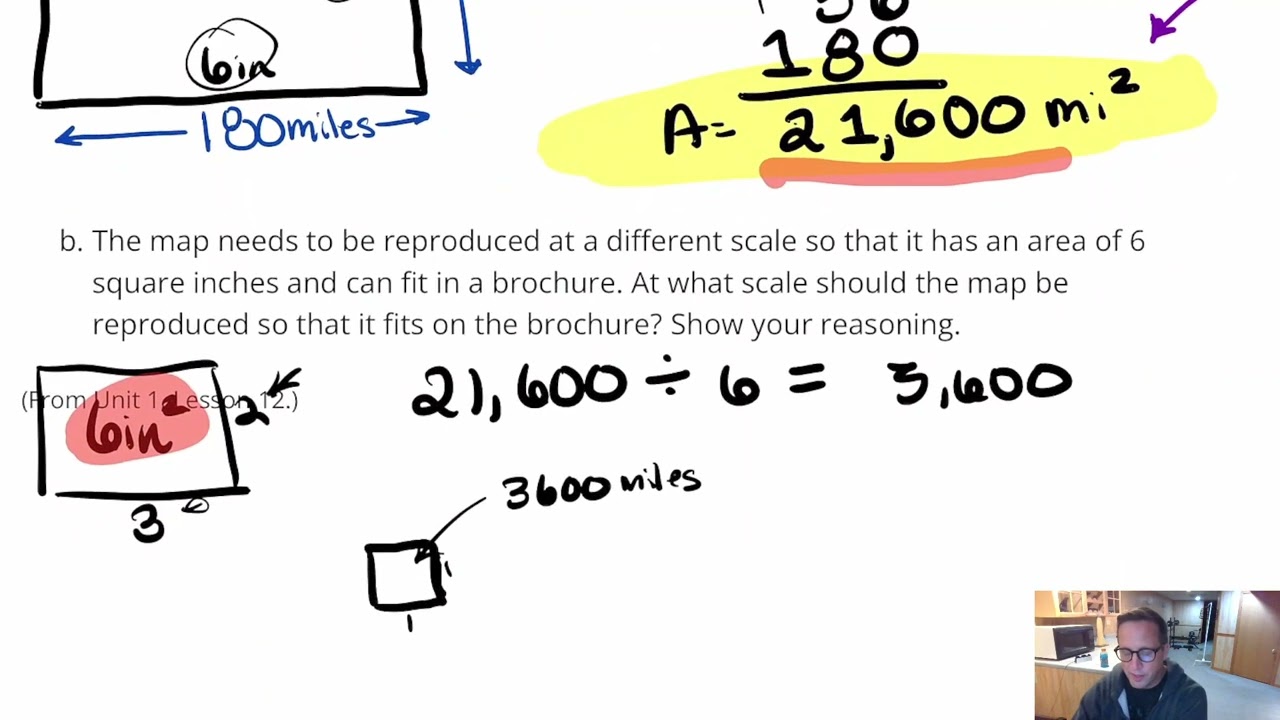 6in
180 miles
180
A= 21,600 mi²
b. The map needs to be reproduced at a different scale so that it has an area of 6
square inches and can fit in a brochure. At what scale should the map be
reproduced so that it fits on the brochure? Show your reasoning.
(From Unit 1, Lesson 12.)
6in²
2
3
21,600 ÷ 6 = 3,600
3600 miles
1
1